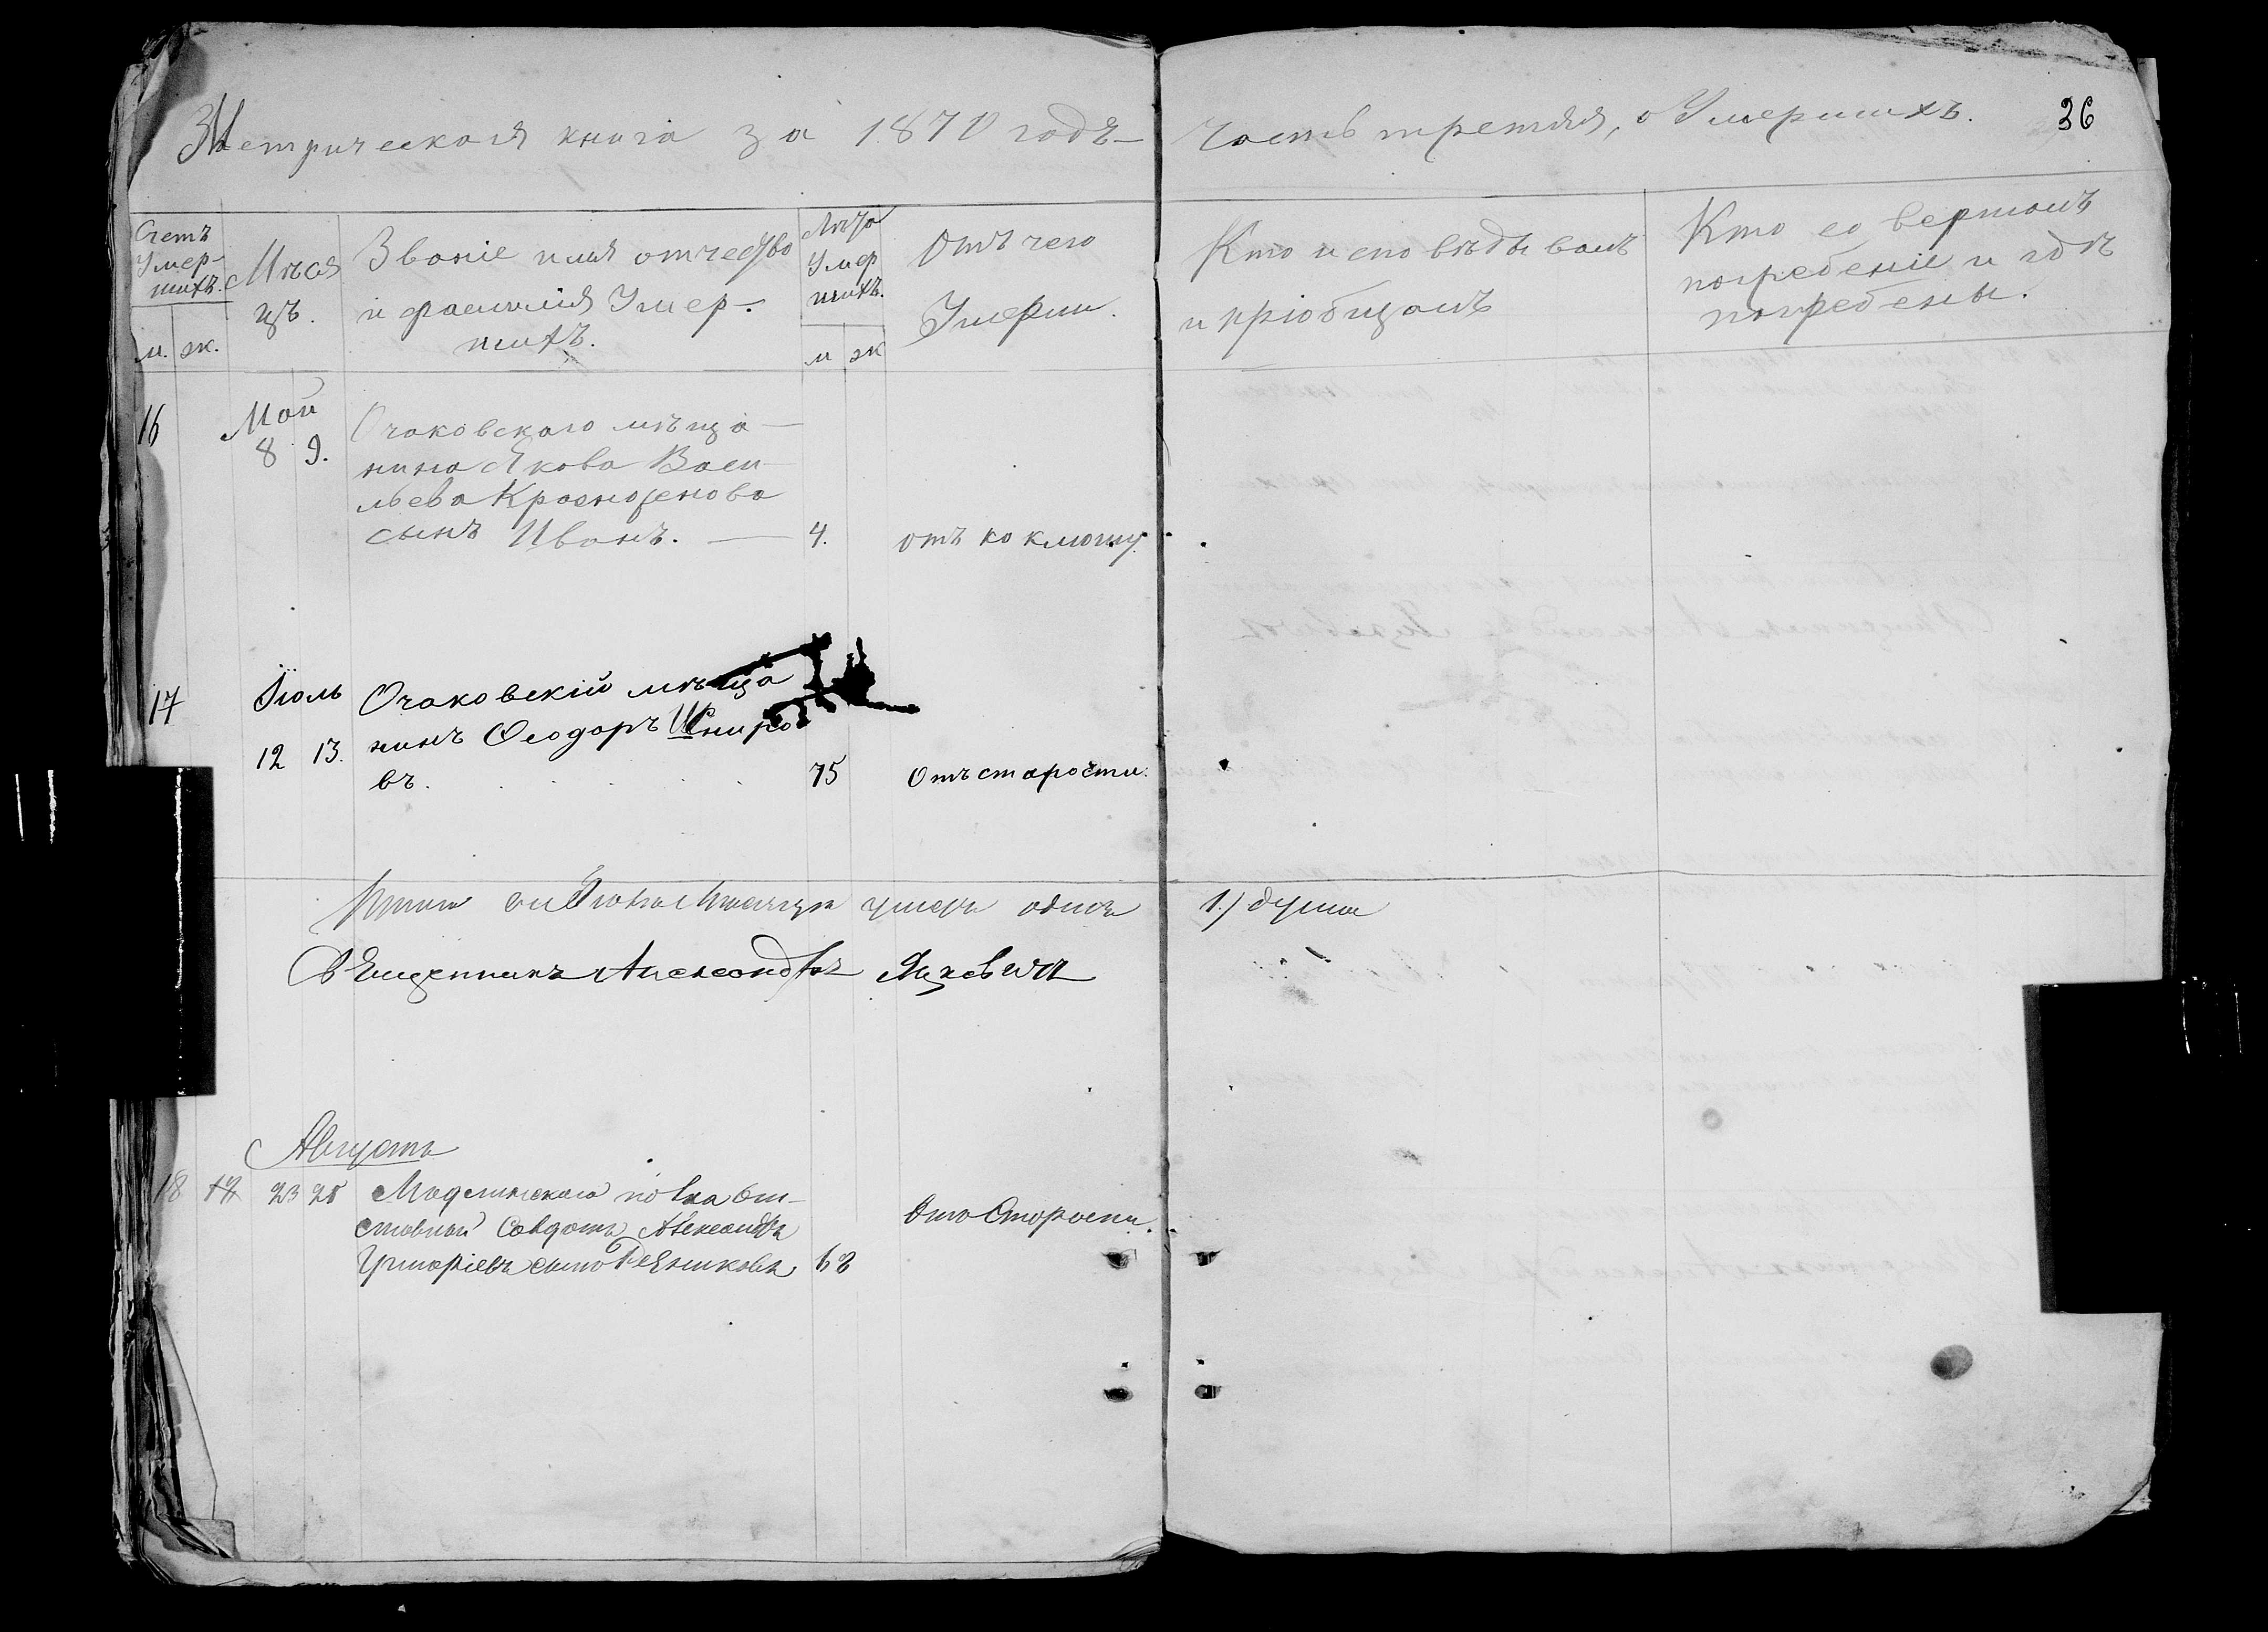 Метрическая книга за 1870 годъ — часть третяя, о Умершихъ. 36
Счетъ
Умер-
шихъ.
м. ж.
Мѣся
цъ.
Званіе имя отчество
и фамилія Умер-
шихъ.
Лѣта
Умер
шихъ.
м ж
Отъ чего
Умерли.
Кто исповѣдывалъ
и пріобщалъ
Кто совершалъ
погребеніе и гдѣ
погребены.
16
Май
8 9.
Очаковскаго мѣща —
нина Якова Васи
льева
сынъ Иванъ. — 4. отъ коклюшу.
17
Іюль
12 13.
Очаковскій мѣща
нинъ Ѳеодоръ
въ. 75 Отъ старости.
умеръ одинъ 1.) душа
Священникъ Александръ Яцкевичъ
Августъ
18 23 25 Модлинскаго полка От-
ставной Солдатъ Александръ
Григоріевъ сынъ 68
Отъ Старости.